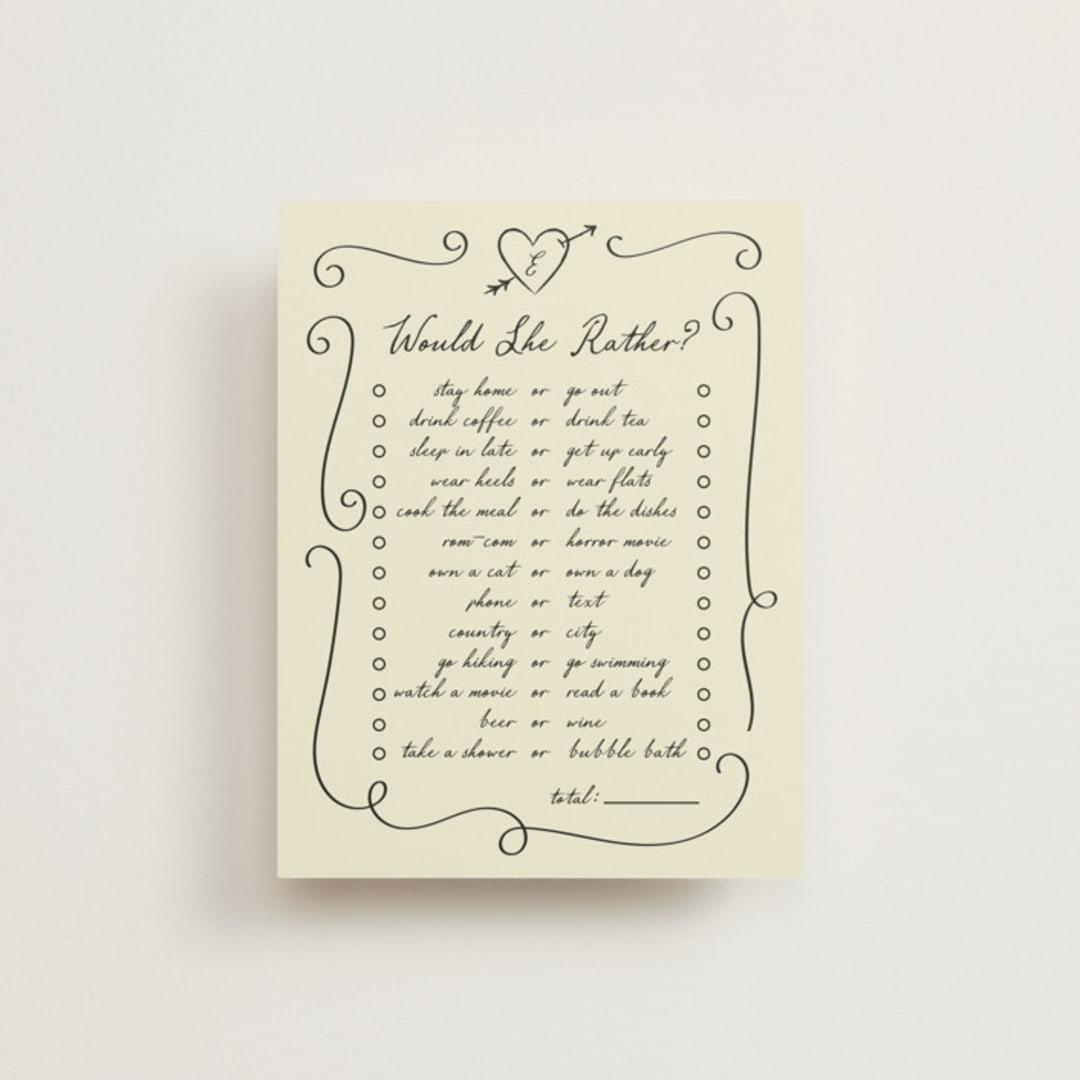 E
Would She Rather?
stay home or go out
drink coffee or drink tea
sleep in late or get up early
wear heels or wear flats
cook the meal or do the dishes
rom-com or horror movie
own a cat or own a dog
phone or text
country or city
go hiking or go swimming
watch a movie or read a book
beer or wine
take a shower or bubble bath
total: